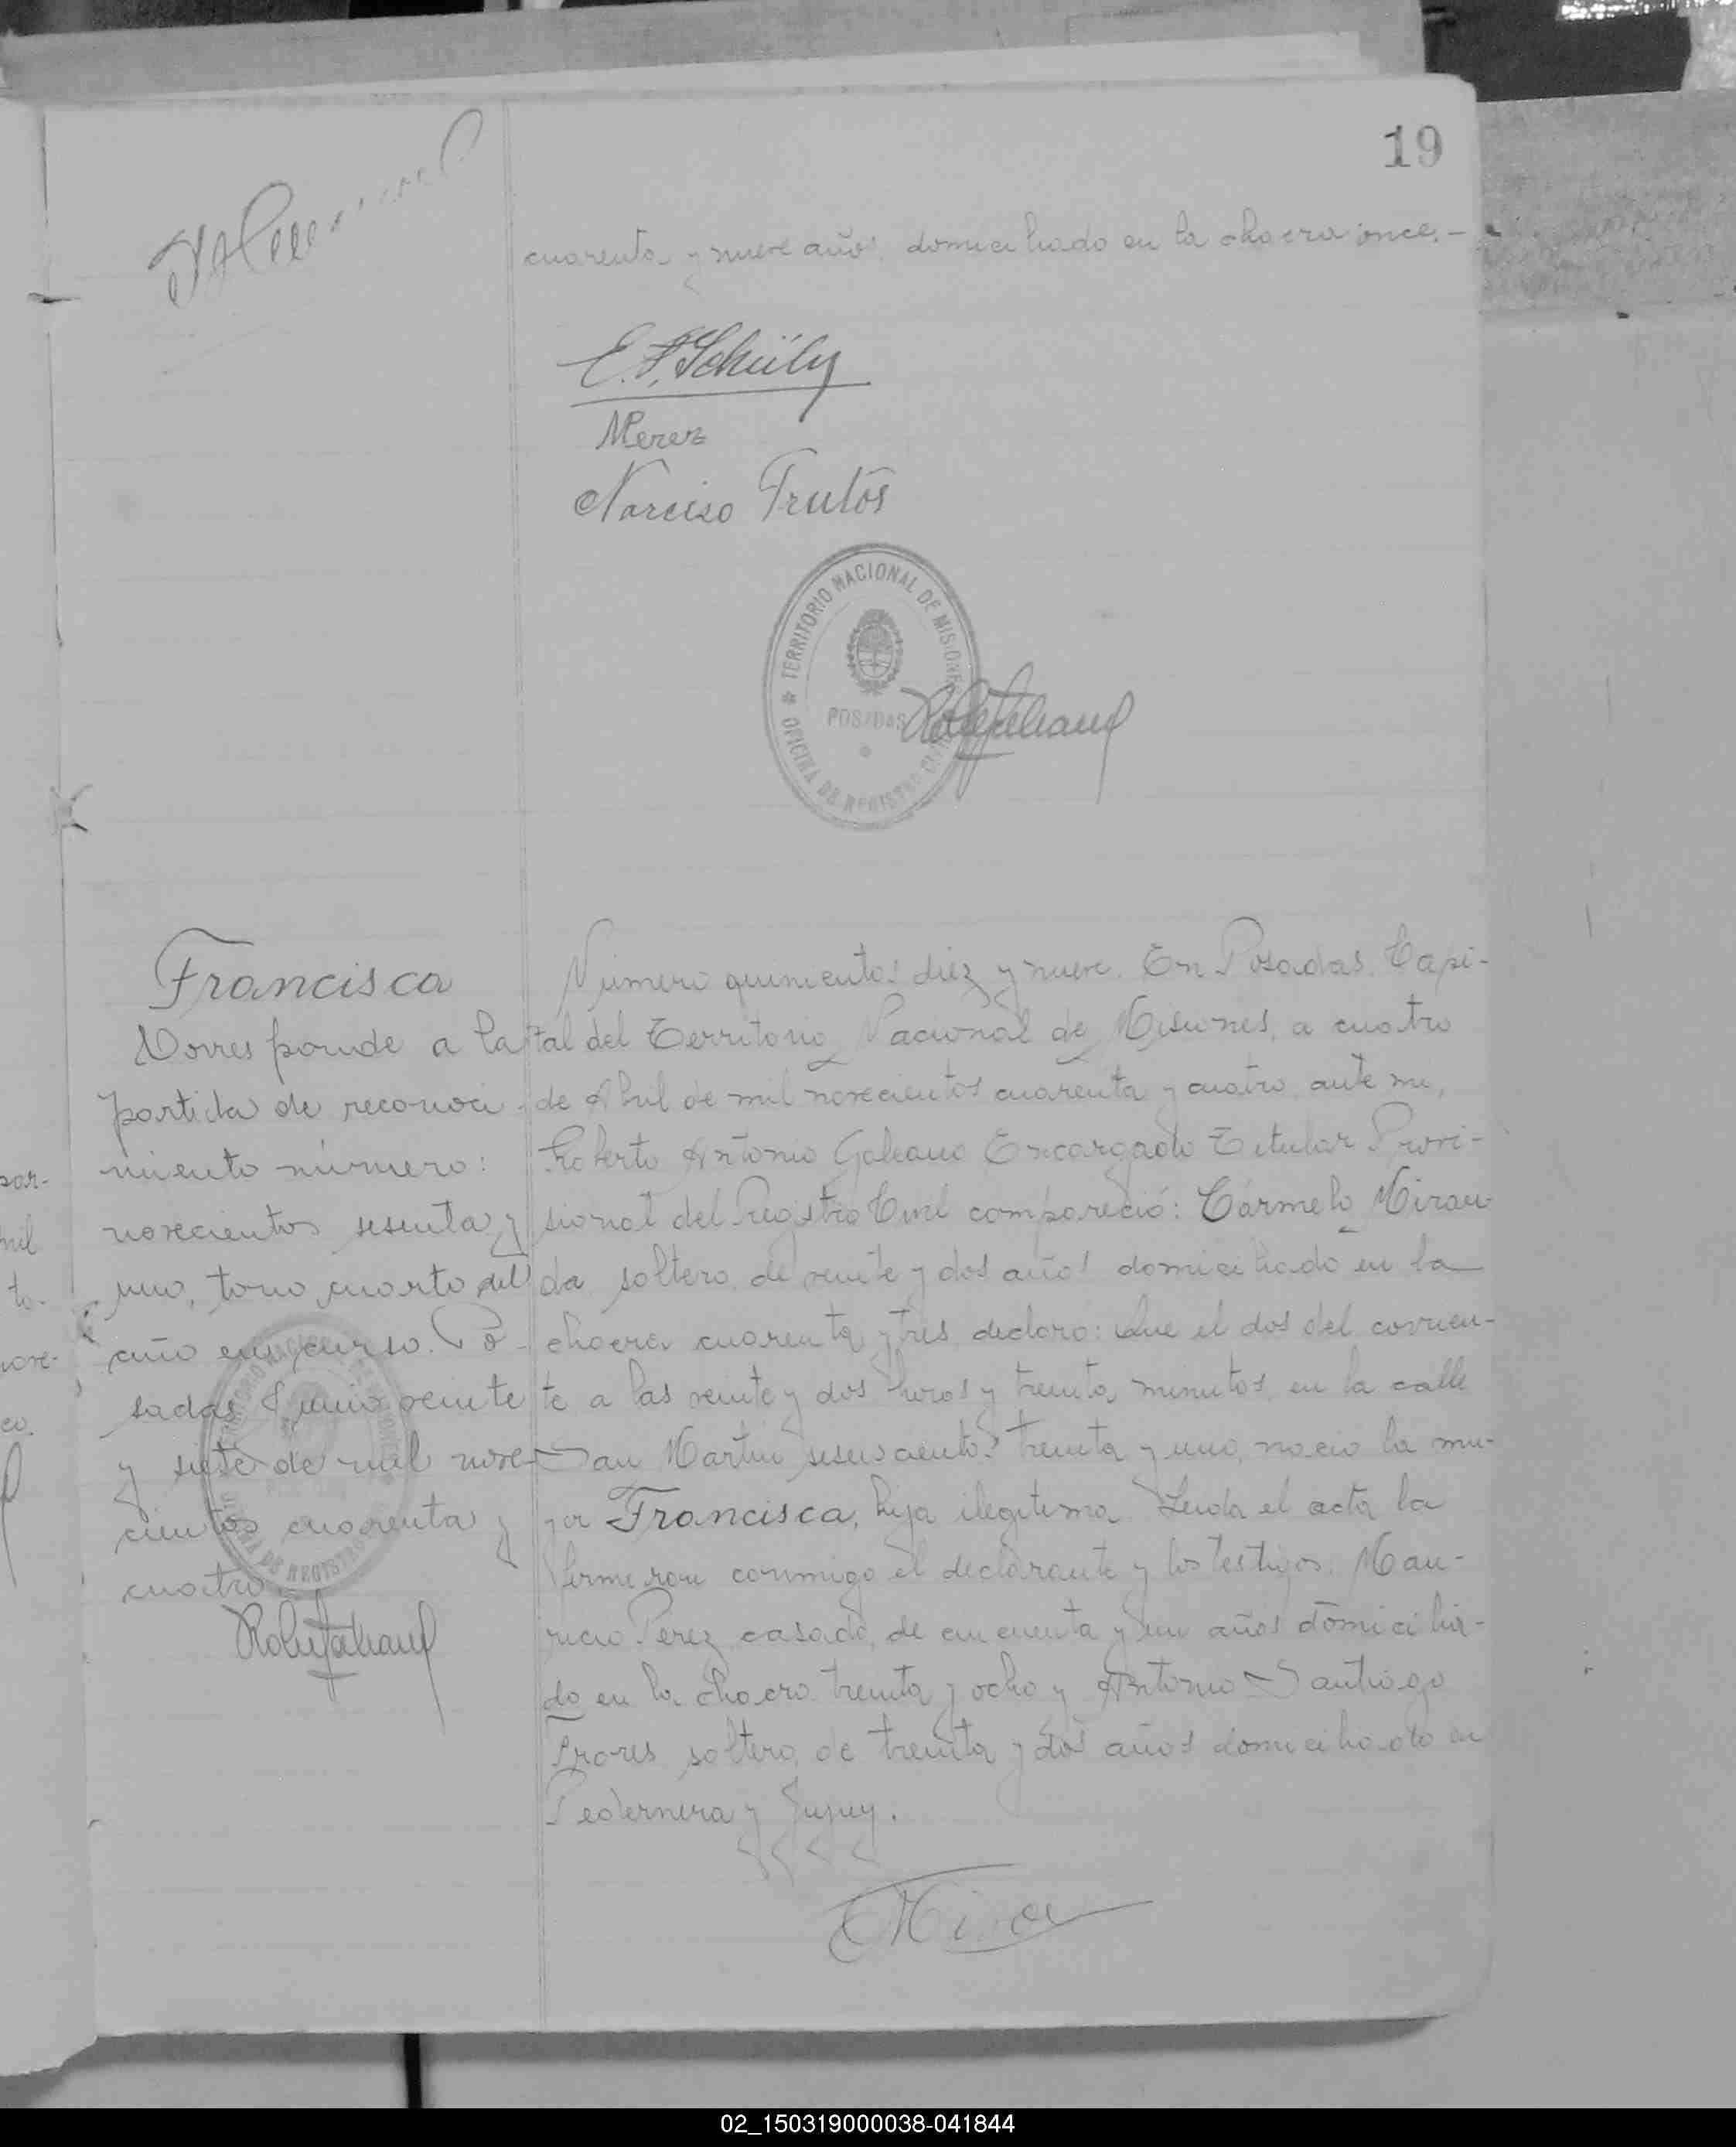 19
cuarenta y nueve años, domiciliado en la chacra once.-
E. F. Schüly
MPerez
Narciso Frutos
TERRITORIO NACIONAL DE MISIONES
POSADAS
OFICINA DE REGISTRO CIVIL
Francisca
Corresponde a la
partida de reconoci-
miento número:
novecientos sesenta y
uno, tomo cuarto del
año en curso. Po-
sadas, Junio veinte
y siete de mil nove-
cientos cuarenta y
cuatro
Número quinientos diez y nueve. En Posadas Capi-
tal del Territorio Nacional de Misiones, a cuatro
de Abril de mil novecientos cuarenta y cuatro, ante mi,
Roberto Antonio Galeano Encargado Titular Provi-
sional del Registro Civil compareció: Cármelo Miran-
da soltero, de veinte y dos años domiciliado en la
chacra cuarenta y tres declaro: Que el dos del corrien-
te a las veinte y dos horas y treinta minutos, en la calle
San Martin seiscientos treinta y uno, nacio la mu-
jer Francisca, hija ilegitima. Leida el acta la
firmaron conmigo el declarante y los testigos. Mau-
ricio Perez casado, de cincuenta y un años domicilia-
do en la chacra treinta y ocho y Antonio Santiago
soltero, de treinta y dos años domiciliado en
Pedernera y Jujuy.
02_150319000038-041844